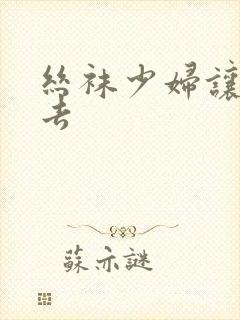 絲袜少婦讓
去
蘇亦謎